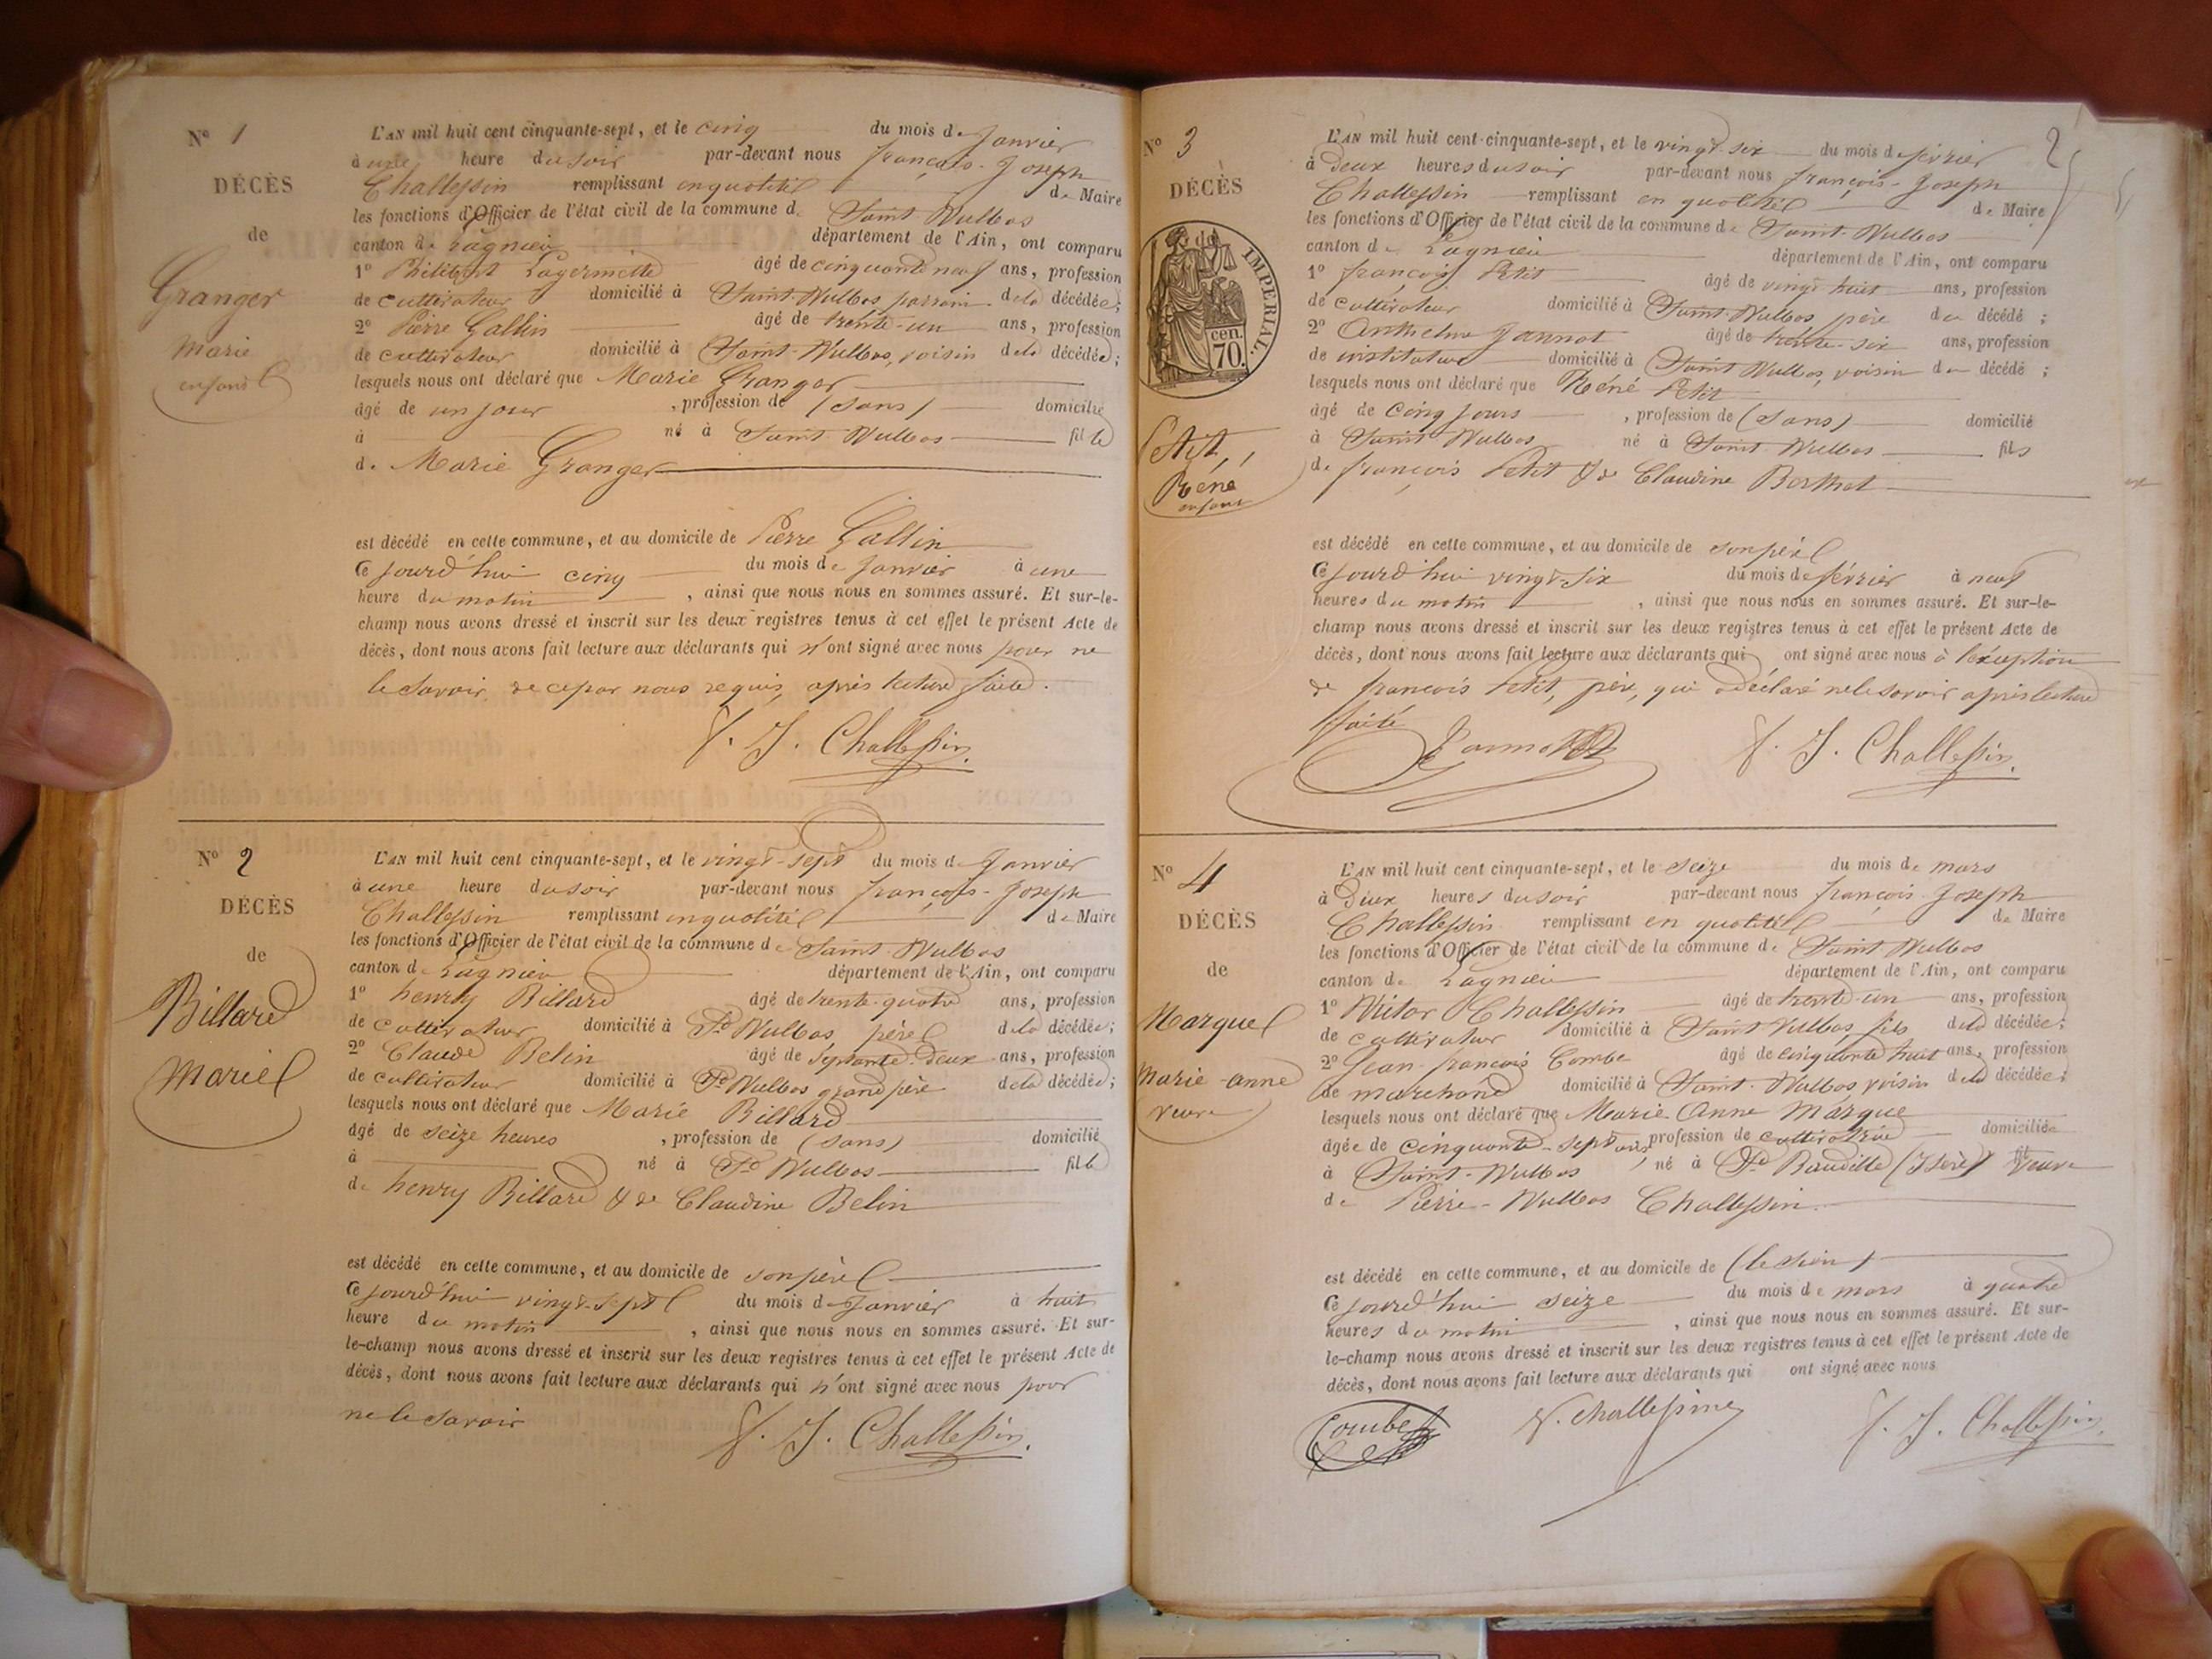 N° 1
DÉCÈS
de
Granger
Marie
enfant
L'AN mil huit cent cinquante-sept, et le cinq du mois de Janvier
à une heure du soir par-devant nous françois-Joseph
Challessin remplissant en qualité de Maire
les fonctions d'Officier de l'état civil de la commune de Saint Vulbas
canton de Lagnieu département de l'Ain, ont comparu
1° Philibert âgé de cinquante neuf ans, profession
de cultivateur domicilié à Saint-Vulbas parrain de la décédée;
2° Pierre Gallin âgé de trente-un ans, profession
de cultivateur domicilié à Saint-Vulbas, voisin de la décédée;
lesquels nous ont déclaré que Marie Granger
âgé de un jour , profession de (sans) domicilié
à né à Saint Vulbas fille
de Marie Granger
est décédé en cette commune, et au domicile de Pierre Gallin
Ce jourd'hui cinq du mois de Janvier à une
heure du matin , ainsi que nous nous en sommes assuré. Et sur-le-
champ nous avons dressé et inscrit sur les deux registres tenus à cet effet le présent Acte de
décès, dont nous avons fait lecture aux déclarants qui n'ont signé avec nous pour ne
le savoir de ce par nous requis, après lecture faite.
f. J. Challessin
N° 2
DÉCÈS
de
Billard
Marie
L'AN mil huit cent cinquante-sept, et le vingt-sept du mois de Janvier
à une heure du soir par-devant nous françois-Joseph
Challessin remplissant en qualité de Maire
les fonctions d'Officier de l'état civil de la commune de Saint-Vulbas
canton de Lagnieu département de l'Ain, ont comparu
1° henry Billard âgé de trente-quatre ans, profession
de cultivateur domicilié à St Vulbas, père de la décédée;
2° Claude Belin âgé de septante-deux ans, profession
de cultivateur domicilié à St Vulbas grand père de la décédée;
lesquels nous ont déclaré que Marie Billard
âgé de seize heures , profession de (sans) domicilié
à né à St Vulbas fille
de henry Billard & de Claudine Belin
est décédé en cette commune, et au domicile de son père
Ce jourd'hui vingt-sept du mois de Janvier à huit
heure du matin , ainsi que nous nous en sommes assuré. Et sur-
le-champ nous avons dressé et inscrit sur les deux registres tenus à cet effet le présent Acte de
décès, dont nous avons fait lecture aux déclarants qui n'ont signé avec nous pour
ne le savoir
f. J. Challessin
2
N° 3
DÉCÈS
de
IMPÉRIAL.
cen.
70.
Petit,
Réné
enfant
L'AN mil huit cent cinquante-sept, et le vingt-six du mois de février
à Deux heures du soir par-devant nous françois-Joseph
Challessin remplissant en qualité de Maire
les fonctions d'Officier de l'état civil de la commune de Saint-Vulbas
canton de Lagnieu département de l'Ain, ont comparu
1° françois Petit âgé de vingt huit ans, profession
de cultivateur domicilié à Saint-Vulbas, père du décédé ;
2° Anthelme Jannot âgé de trente-six ans, profession
de instituteur domicilié à Saint Vulbas, voisin du décédé ;
lesquels nous ont déclaré que Réné Petit
âgé de Cinq jours , profession de (sans) domicilié
à Saint Vulbas né à Saint-Vulbas fils
de françois Petit & de Claudine Berthet
est décédé en cette commune, et au domicile de son père
Ce jourd'hui vingt-six du mois de février à neuf
heures du matin , ainsi que nous nous en sommes assuré. Et sur-le-
champ nous avons dressé et inscrit sur les deux registres tenus à cet effet le présent Acte de
décès, dont nous avons fait lecture aux déclarants qui ont signé avec nous à l'exception
de françois Petit, père, qui a déclaré ne le savoir après lecture
faite
Jannot f. J. Challessin
N° 4
DÉCÈS
de
Marque
Marie-anne
veuve
L'AN mil huit cent cinquante-sept, et le seize du mois de mars
à Deux heures du soir par-devant nous françois-Joseph
Challessin remplissant en qualité de Maire
les fonctions d'Officier de l'état civil de la commune de Saint Vulbas
canton de Lagnieu département de l'Ain, ont comparu
1° Victor Challessin âgé de trente-un ans, profession
de cultivateur domicilié à Saint Vulbas, fils de la décédée;
2° Jean-françois Combe âgé de cinquante huit ans, profession
de marchand domicilié à Saint-Vulbas voisin de la décédée;
lesquels nous ont déclaré que Marie Anne Marque
âgée de cinquante-sept ans, profession de cultivatrice domiciliée
à Saint-Vulbas né à St Baudille (Isère) veuve
de Pierre-Vulbas Challessin
est décédé en cette commune, et au domicile de (le sien)
Ce jourd'hui seize du mois de mars à quatre
heures du matin , ainsi que nous nous en sommes assuré. Et sur-
le-champ nous avons dressé et inscrit sur les deux registres tenus à cet effet le présent Acte de
décès, dont nous avons fait lecture aux déclarants qui ont signé avec nous
Combe V. Challessin f. J. Challessin